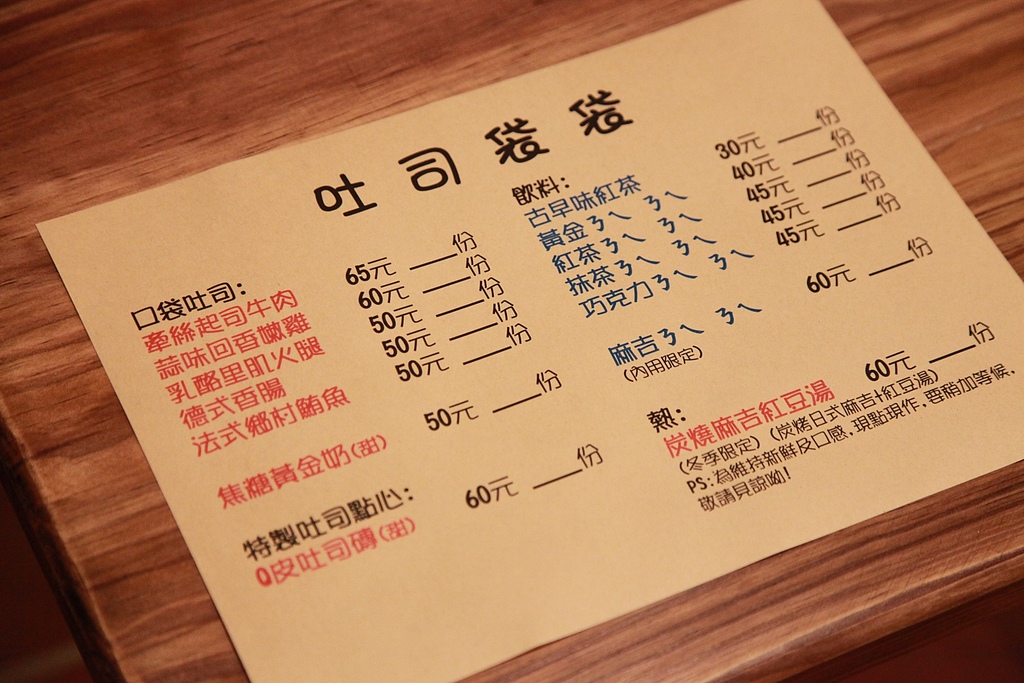 吐司袋袋
口袋吐司:
牽絲起司牛肉 65元 ___份
蒜味回香嫩雞 60元 ___份
乳酪里肌火腿 50元 ___份
德式香腸 50元 ___份
法式鄉村鮪魚 50元 ___份
焦糖黃金奶(甜) 50元 ___份
特製吐司點心:
Q皮吐司磚(甜) 60元 ___份
飲料:
古早味紅茶 30元 ___份
黃金ㄋㄟ ㄋㄟ 40元 ___份
紅茶ㄋㄟ ㄋㄟ 45元 ___份
抹茶ㄋㄟ ㄋㄟ 45元 ___份
巧克力ㄋㄟ ㄋㄟ 45元 ___份
麻吉ㄋㄟ ㄋㄟ 60元 ___份
(內用限定)
熱:
炭燒麻吉紅豆湯 60元 ___份
(冬季限定) (炭烤日式麻吉+紅豆湯)
PS:為維持新鮮及口感,現點現作,要稍加等候,
敬請見諒呦!